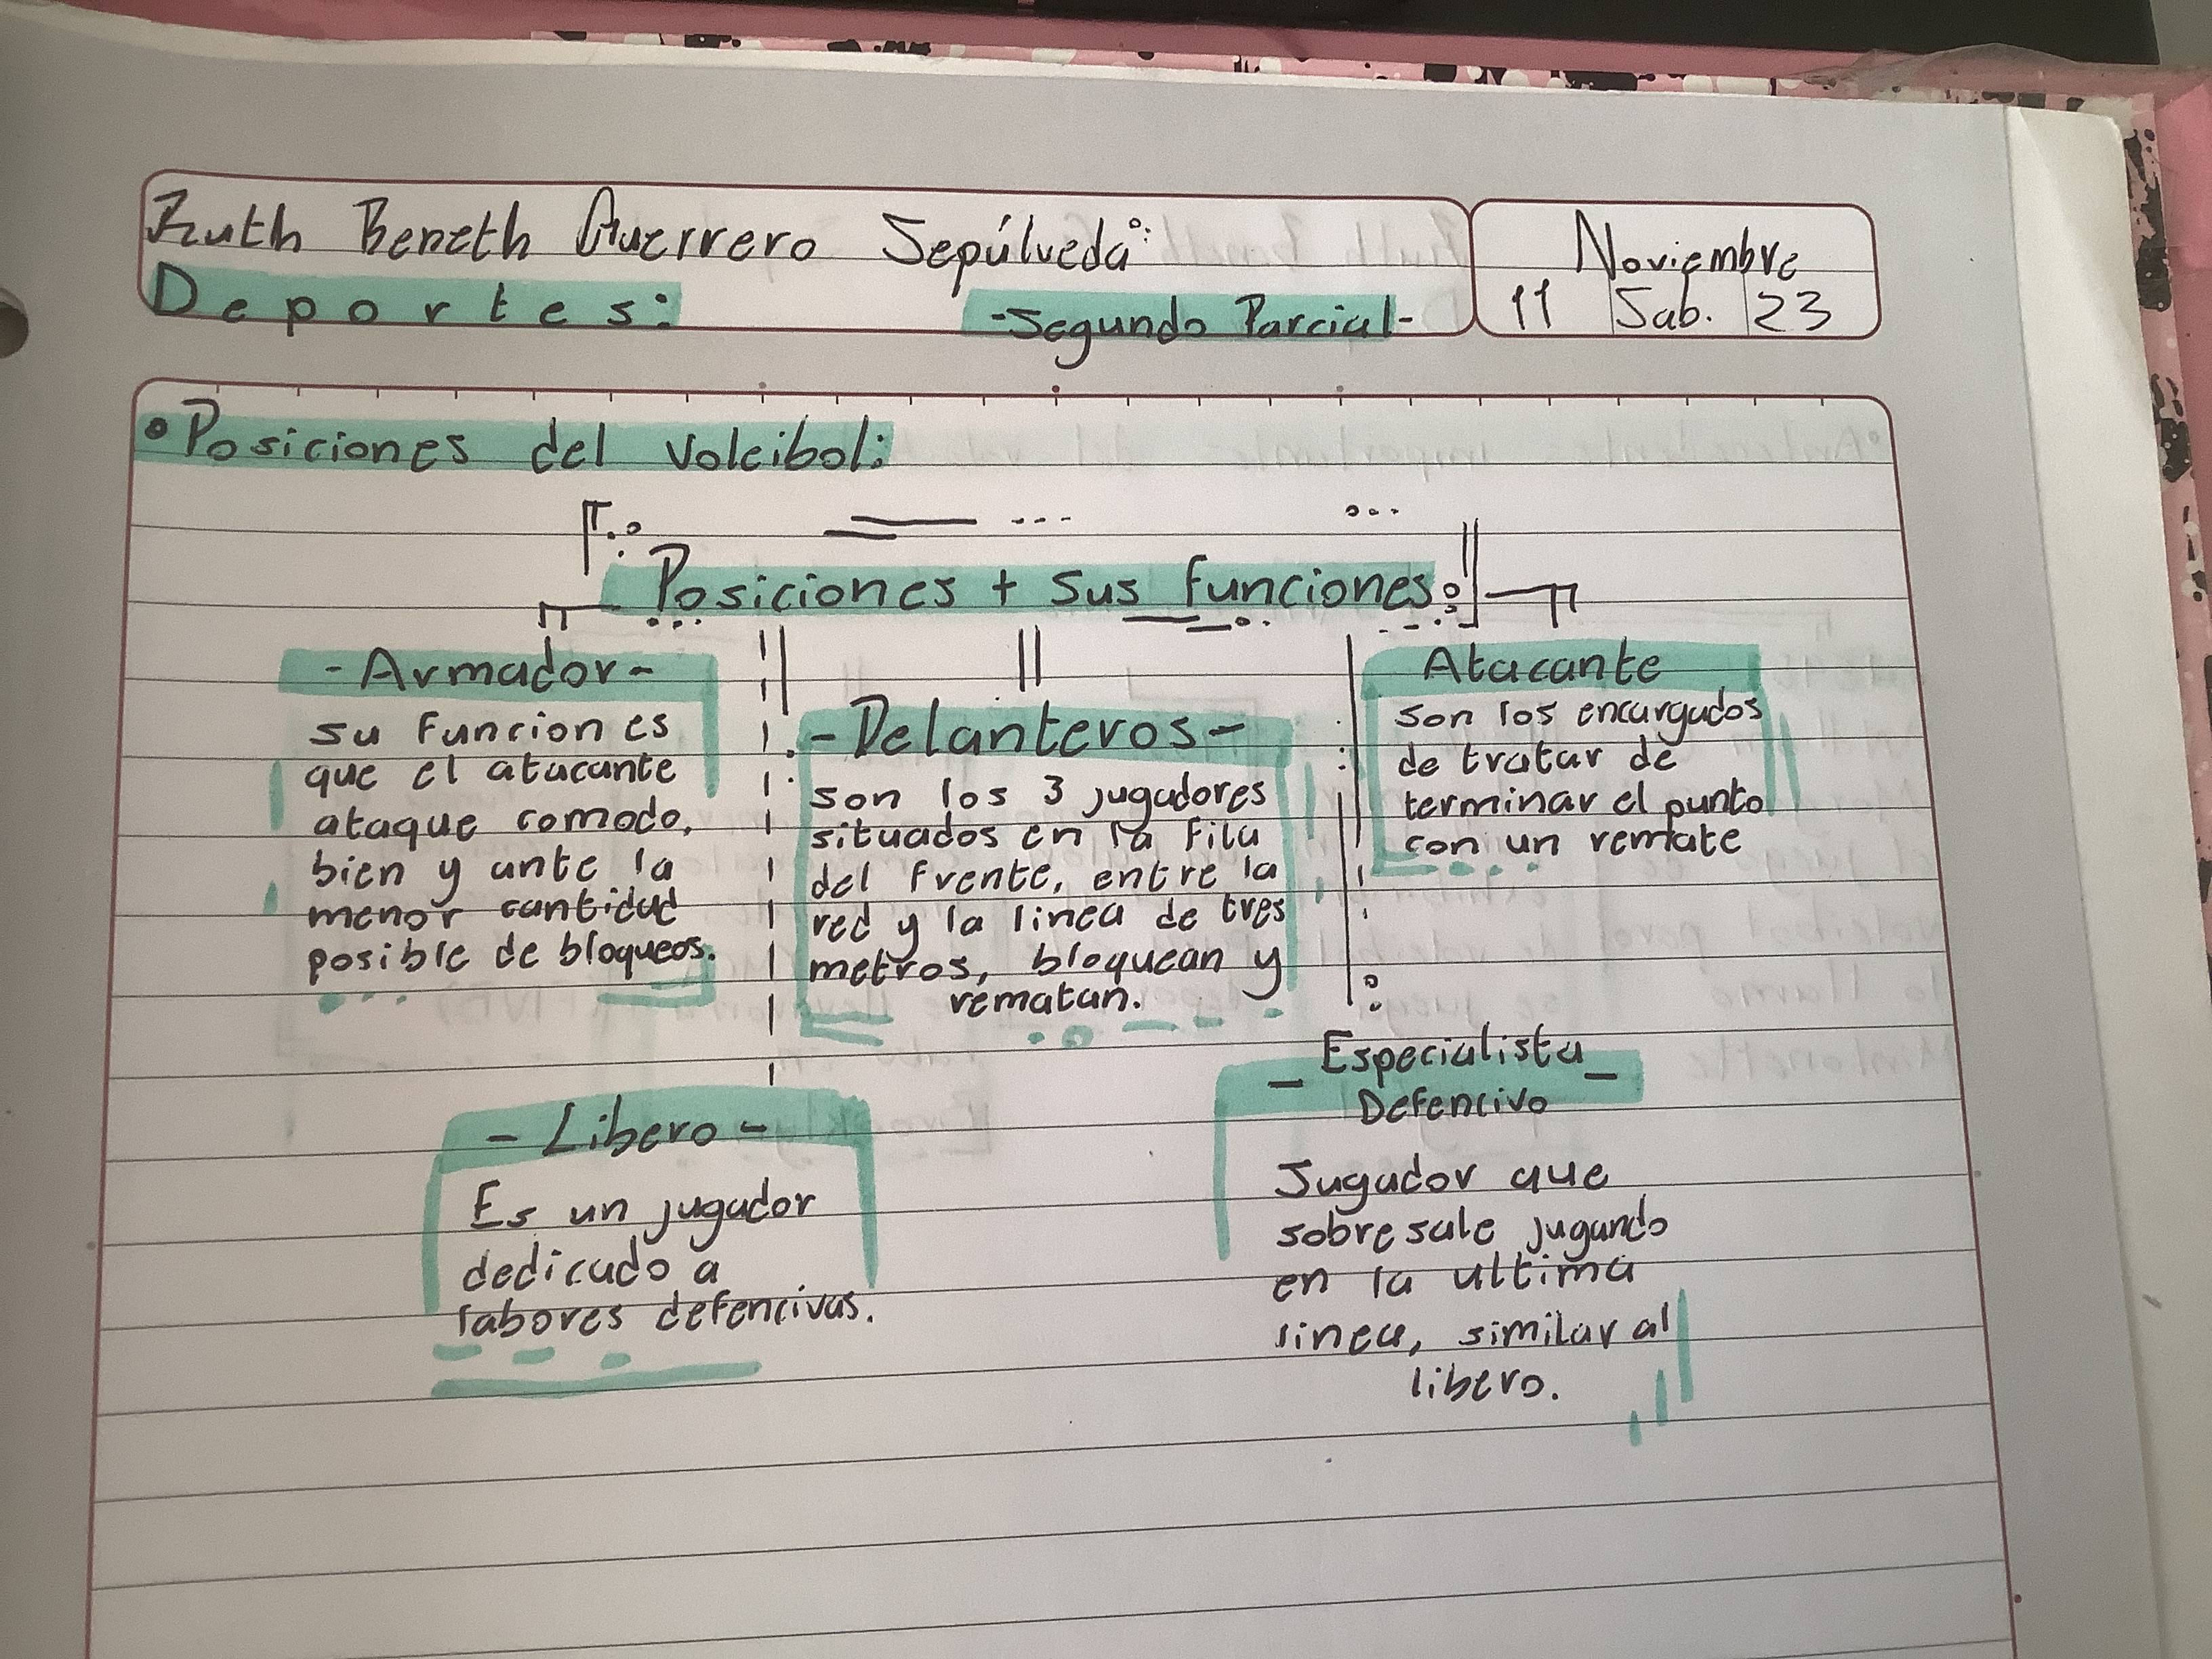 Ruth Beneth Guerrero Sepúlveda:
Deportes:
-Segundo Parcial-
Noviembre
11 Sab. 23
•Posiciones del voleibol:
Posiciones + sus funciones:
-Armador-
su funcion es
que el atacante
ataque comodo,
bien y ante la
menor cantidad
posible de bloqueos.
-Delanteros-
son los 3 jugadores
situados en la fila
del frente, entre la
red y la linea de tres
metros, bloquean y
rematan.
Atacante
son los encargados
de tratar de
terminar el punto
con un remate
-Libero-
Es un jugador
dedicado a
labores defencivas.
- Especialista -
Defencivo
Jugador que
sobresale jugando
en la ultima
linea, similar al
libero.